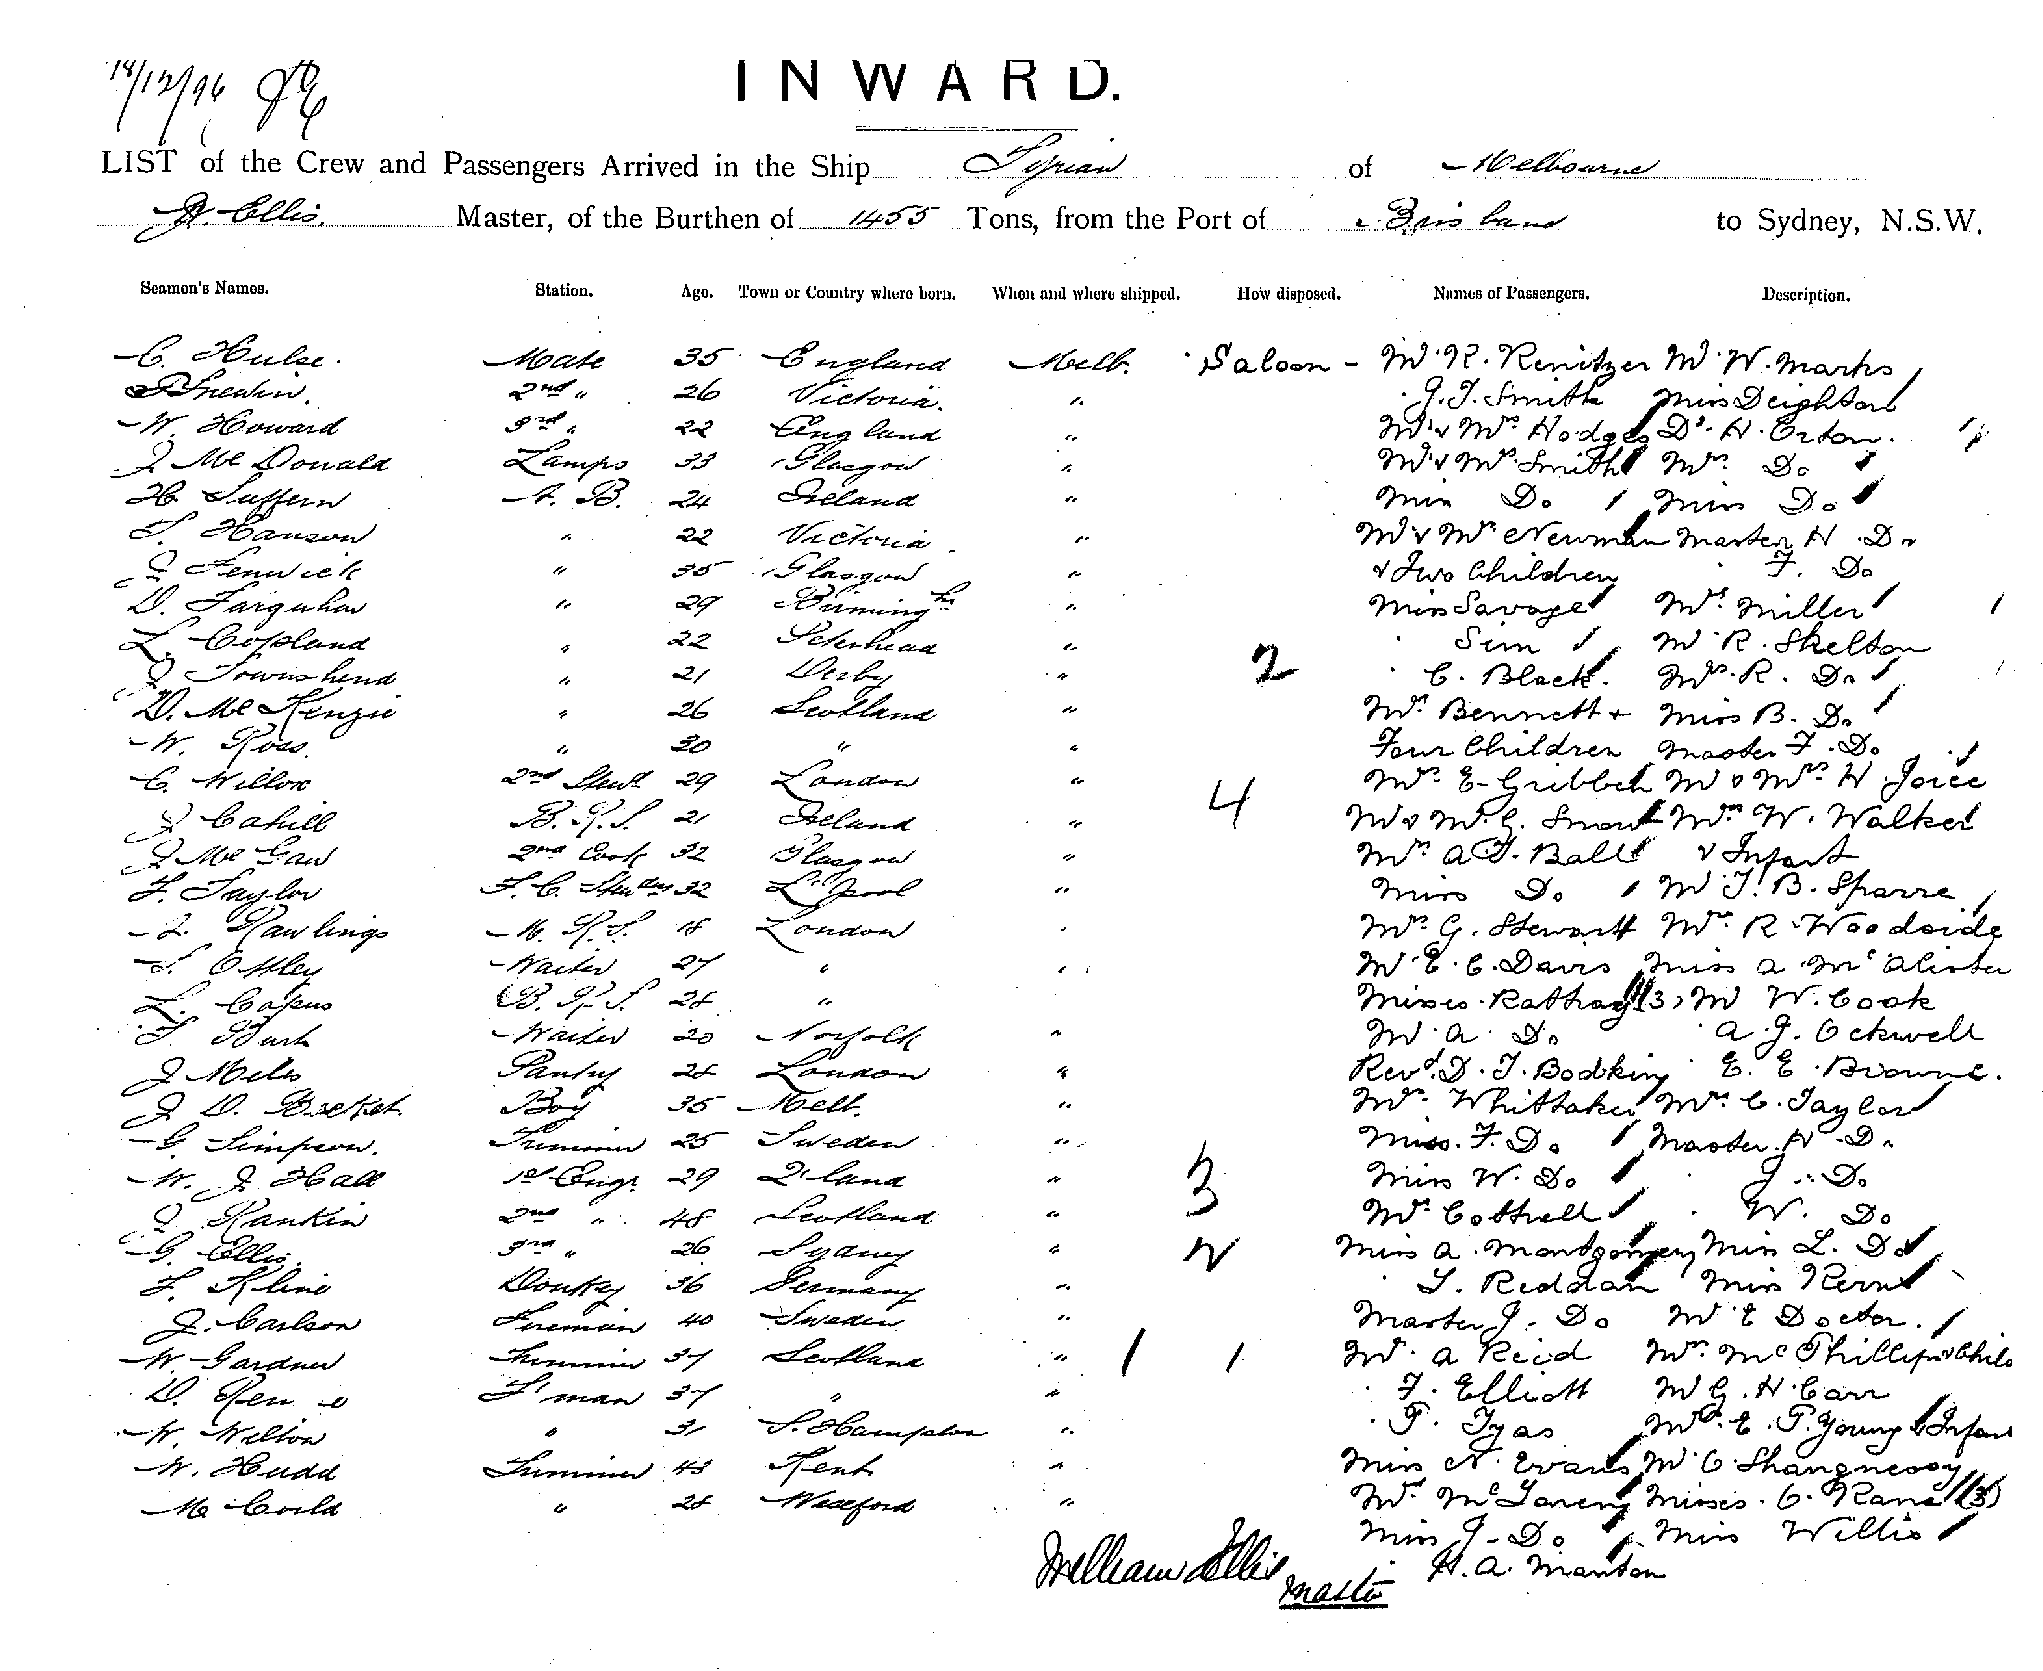 18/12/96
INWARD.
LIST of the Crew and Passengers Arrived in the Ship Tyrian of Melbourne
W. Ellis. Master, of the Burthen of 1455 Tons, from the Port of Brisbane to Sydney, N.S.W.
Seamen's Names. Station. Age. Town or Country where born. When and where shipped. How disposed. Names of Passengers. Description.
C. Hulse. Mate 35 England Melb. Saloon - Mr. R. Renitzer Mr. W. Marks
2nd " 26 Victoria. " G. F. Smith Miss Deighton
W. Howard 3rd " 22 England " Mr & Mrs Hodges Dr. H. Orton.
J McDonald Lamps 33 Glasgow " Mr & Mrs Smith Mrs Do
H Suffern A. B. 24 Ireland " Miss Do Miss Do
S. Hanson " 22 Victoria " Mr & Mrs Newman Master H. Do
J Fenwick " 35 Glasgow " & Two Children F. Do
D. Farquhar " 29 Birmingh'm " Miss Savage Mrs Miller
L Copland " 22 Peterhead " Sim Mr R. Skelton
J Townshend " 21 Derby " 2 C. Black. Mrs. R. Do
D. McKenzie " 26 Scotland " Mrs Bennett & Miss B. Do
W. Ross. " 30 " " Four Children Master F. Do
C. Willox 2nd Stewd 29 London " 4 Mrs E Gribbeh Mr & Mrs H Joice
J Cahill B. R. S. 21 Ireland " Mr & Mrs G. Snow Mrs W. Walker
J McGaw 2nd Cook 32 Glasgow " Mrs A F. Ball & Infant
F. Taylor F. C. Stewdess 32 L'pool " Miss Do Mr J. B. Sparre
J. Rawlings M. R. S. 18 London " Mrs G. Stewart Mrs R Woodside
S. Offley Waiter 27 " " Mr E. C. Davis Miss A McAlister
L. Copus B. R. S. 28 " Misses Rathay (3) Mr W. Cook
F. Bush Waiter 20 Norfolk " Mr A. Do A. J. Ockwell
J Miles Pantry 28 London " Revd. D. F. Bodkin E. E. Browne.
J D. Becket Boy 35 Melb. " Mrs. Whittaker Mrs C. Taylor
G. Simpson. Trimmer 25 Sweden " Miss. F. Do Master. H. Do
W. J Hall 1st Engr 29 Q'land " 3 Miss W. Do J. Do
J Rankin 2nd " 48 Scotland " Mrs Cottrell W. Do
G. Ellis. 3rd " 26 Sydney " 2 Miss A. Montgomery Miss L. Do
F. Kline Donkey 36 Germany " T. Reddan Miss Kern
J. Carlson Fireman 40 Sweden " Master J. Do Mr E Docter.
W. Gardner Trimmer 37 Scotland " 1 1 Mr. A Reid Mrs. McPhillips & Child
D. F'man 37 " " F. Elliott Mr G. H. Carr
W. Welton " 31 S. Hampton " P. Tyas Mrs. E. P. Young & Infant
W. Hudd Trimmer 43 Kent " Miss N. Evans Mr C. Shangnessy
M Coula " 28 Wexford " Mrs Misses. C. Kane (3)
Miss J. Do Miss Willis
William Ellis H. A. Manton
Master